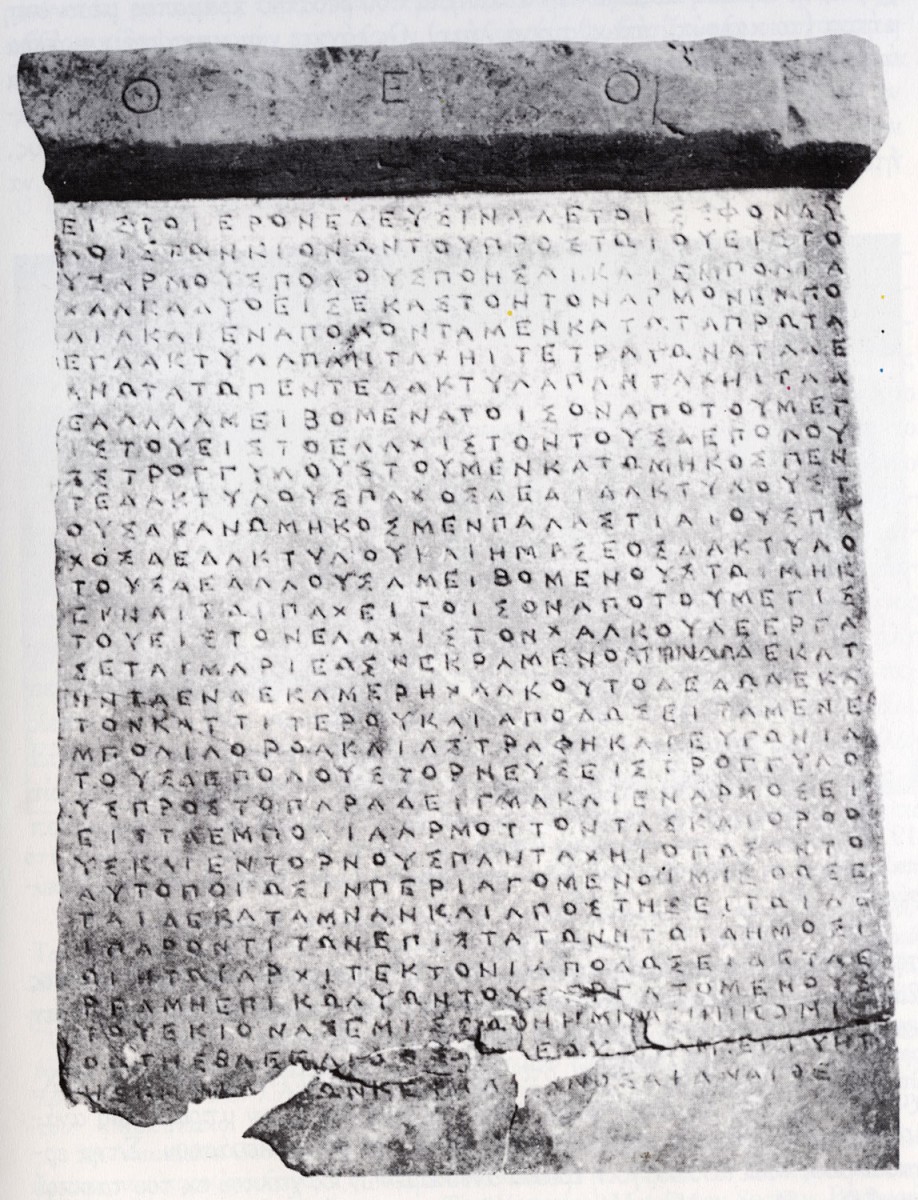 ΘΕΟ
ΕΙΣΤΟΙΕΡΟΝΕΛΕΥΣΙΝΑΔΕΤΟΙΣΣΦΟΝΔΥ
ΛΟΙΣΤΩΝΚΙΟΝΩΝΤΟΥΠΡΟΣΤΩΙΟΥΕΙΣΤΟ
ΥΣΑΡΜΟΥΣΠΟΛΟΥΣΠΟΗΣΑΙΚΑΙΕΜΠΟΛΙΑ
ΧΑΛΚΑΔΥΟΕΙΣΕΚΑΣΤΟΝΤΟΝΑΡΜΟΝΕΝΠΟ
ΛΙΑΚΑΙΕΝΑΠΟΛΟΝΤΑΜΕΝΚΑΤΩΤΑΠΡΩΤΑ
ΕΓΔΑΚΤΥΛΑΠΑΝΤΑΧΗΙΤΕΤΡΑΓΩΝΑΤΑΔΕ
ΑΝΩΤΑΤΩΠΕΝΤΕΔΑΚΤΥΛΑΠΑΝΤΑΧΗΙΤΑΔ
ΕΑΛΛΑΑΜΕΙΒΟΜΕΝΑΤΟΙΣΟΝΑΠΟΤΟΥΜΕΓ
ΙΣΤΟΥΕΙΣΤΟΕΛΑΧΙΣΤΟΝΤΟΥΣΔΕΠΟΛΟΥ
ΣΣΤΡΟΓΓΥΛΟΥΣΤΟΥΜΕΝΚΑΤΩΜΗΚΟΣΠΕΝ
ΤΕΔΑΚΤΥΛΟΥΣΠΑΧΟΣΔΕΔΙΔΑΚΤΥΛΟΥΣΤ
ΟΥΣΔΕΑΝΩΜΗΚΟΣΜΕΝΠΑΛΑΣΤΙΑΙΟΥΣΠΑ
ΧΟΣΔΕΔΑΚΤΥΛΟΥΚΑΙΗΜΙΣΕΟΣΔΑΚΤΥΛΟ
ΤΟΥΣΔΕΑΛΛΟΥΣΑΜΕΙΒΟΜΕΝΟΥΣΤΩΙΜΗΚ
ΕΙΚΑΙΤΩΙΠΑΧΕΙΤΟΙΣΟΝΑΠΟΤΟΥΜΕΓΙΣ
ΤΟΥΕΙΣΤΟΝΕΛΑΧΙΣΤΟΝΧΑΛΚΟΥΔΕΕΡΓΑ
ΣΕΤΑΙΜΑΡΙΕΩΣΚΕΚΡΑΜΕΝΟΥΤΗΝΔΩΔΕΚΑΤ
ΗΝΤΑΕΝΔΕΚΑΜΕΡΗΧΑΛΚΟΥΤΟΔΕΔΩΔΕΚΑ
ΤΟΝΚΑΤΤΙΤΕΡΟΥΚΑΙΑΠΟΔΩΣΕΙΤΑΜΕΝΕ
ΜΠΟΛΙΑΟΡΘΑΚΑΙΑΣΤΡΑΦΗΚΑΙΕΥΓΩΝΙΑ
ΤΟΥΣΔΕΠΟΛΟΥΣΤΟΡΝΕΥΣΕΙΣΤΡΟΓΓΥΛΟ
ΥΣΠΡΟΣΤΟΠΑΡΑΔΕΙΓΜΑΚΑΙΕΝΑΡΜΟΣΕΙ
ΕΙΣΤΑΕΜΠΟΛΙΑΑΡΜΟΤΤΟΝΤΑΣΚΑΙΟΡΘΟ
ΥΣΚΑΙΕΝΤΟΡΝΟΥΣΠΑΝΤΑΧΗΙΟΠΩΣΑΝΤΟ
ΑΥΤΟΠΟΙΩΣΙΝΠΕΡΙΑΓΟΜΕΝΟΙΜΙΣΘΩΣΕ
ΤΑΙΔΕΚΑΤΑΜΝΑΝΚΑΙΑΠΟΣΤΗΣΕΙΤΩΙΑΕ
ΙΠΑΡΟΝΤΙΤΩΝΕΠΙΣΤΑΤΩΝΗΤΩΙΔΗΜΟΣΙ
ΩΙΗΤΩΙΑΡΧΙΤΕΚΤΟΝΙΑΠΟΔΩΣΕΙΔΕΤΑΕ
ΡΓΑΜΗΕΠΙΚΩΛΥΩΝΤΟΥΣΕΡΓΑΖΟΜΕΝΟΥΣ
ΤΟΥΣΚΙΟΝΑΣΕΜΙΣΘΩΘΗΗΜΝΑ
ΕΓΓΥΗΤ